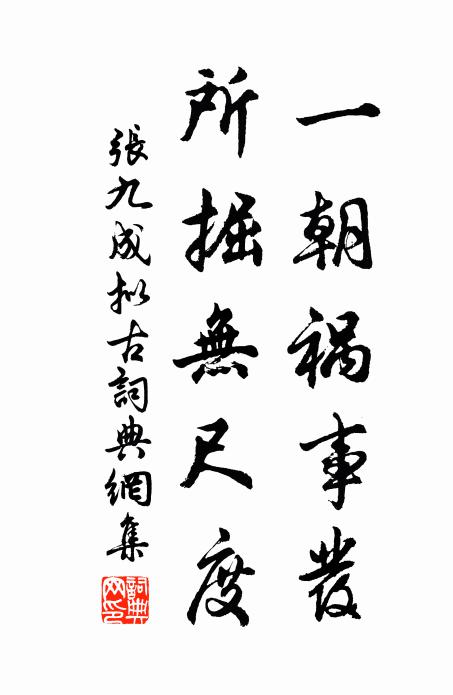 一朝禍事發
所掘無尺度
張九成拟古詞典網集
詞典網印